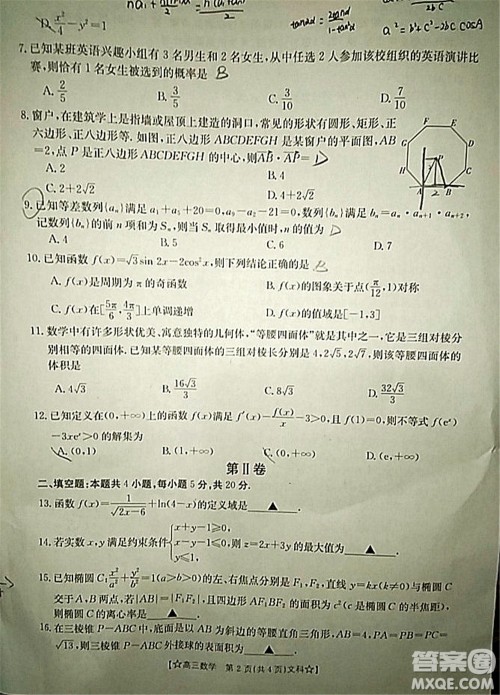 D. x²/4 - y² = 1
tanα = 2tanα/(1-tan²α)
a² = b² + c² - 2bc cosA
7. 已知某班英语兴趣小组有 3 名男生和 2 名女生，从中任选 2 人参加该校组织的英语演讲比
赛，则恰有 1 名女生被选到的概率是 B
A. 2/5 B. 3/5 C. 3/10 D. 7/10
8. 窗户，在建筑学上是指墙或屋顶上建造的洞口，常见的形状有圆形、矩形、正
六边形、正八边形等. 如图，正八边形 ABCDEFGH 是某窗户的平面图，AB
=2，点 P 是正八边形 ABCDEFGH 的中心，则AB·AP= D
A. 2 B. 4
C. 2+2√2 D. 4+2√2
H G F E D C A B P 2
9. 已知等差数列{aₙ}满足 a₁+a₃+20=0，a₉-21=0，数列{bₙ}满足 bₙ=aₙ·aₙ₊₁·aₙ₊₂，
记数列{bₙ}的前 n 项和为 Sₙ，则当 Sₙ 取得最小值时，n 的值为 D
A. 4 B. 5 C. 6 D. 7
10. 已知函数 f(x)=√3sin 2x-2cos²x，则下列结论正确的是 B
A. f(x)是周期为 π 的奇函数 B. f(x)的图象关于点(π/12, 1)对称
C. f(x)在[5π/6, 4π/3]上单调递增 D. f(x)的值域是[-4,0]
11. 数学中有许多形状优美、寓意独特的几何体，“等腰四面体”就是其中之一，它是三组对棱分
别相等的四面体. 已知某等腰四面体的三组对棱长分别是 4, 2√5, 2√7，则该等腰四面体的
体积是
A. 4√3 B. 16√3/3 C. 8√3 D. 32√3/3
12. 已知定义在(0,+∞)上的函数 f(x)满足 f′(x)-f(x)/x-3>0，且 f(1)=0，则不等式 f(eˣ)
-3xeˣ>0 的解集为
A. (0,1) B. (0,+∞) C. (1,+∞) D. (e,+∞)
第Ⅱ卷
二、填空题：本题共 4 小题，每小题 5 分，共 20 分.
13. 函数 f(x)=1/√(2x-6)+ln(4-x)的定义域是 ▲ .
14. 若实数 x,y 满足约束条件{x+y-1≥0, x-y-1≤0, y≤1, 则 z=2x+3y 的最大值为 ▲ .
15. 已知椭圆 C: x²/a²+y²/b²=1(a>b>0)的左、右焦点分别是 F₁,F₂，直线 y=kx(k≠0)与椭圆 C
交于 A,B 两点，若|AB|=|F₁F₂|且四边形 AF₁BF₂ 的面积是
C 的离心率是 ▲ .
16. 在三棱锥 P-ABC 中，底面 ABC
☆高三数学 第 2 页(共 4 页)文科☆
答案圈
MXQE.COM